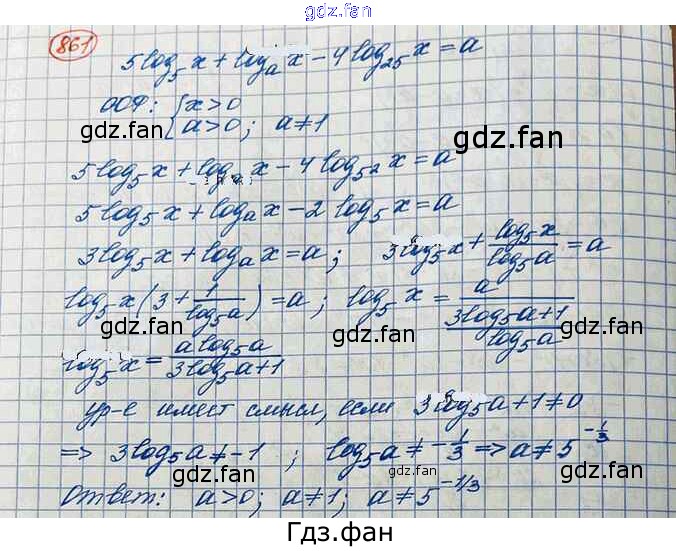 gdz.fan
861
5log₅x + logₐx − 4log₂₅x = a
ООФ: { x>0
a>0; a≠1
gdz.fan
gdz.fan
5log₅x + logₐx − 4log₅²x = a
5log₅x + logₐx − 2log₅x = a
3log₅x + logₐx = a; 3log₅x + log₅x/log₅a = a
gdz.fan
gdz.fan
log₅x(3 + 1/log₅a) = a; log₅x = a/((3log₅a+1)/log₅a)
gdz.fan
gdz.fan
log₅x = a log₅a/(3log₅a+1)
gdz.fan
ур-е имеет смысл, если 3log₅a+1≠0
gdz.fan
=> 3log₅a≠−1; log₅a≠−1/3 => a≠5^(−1/3)
gdz.fan
gdz.fan
gdz.fan
Ответ: a>0; a≠1; a≠5^(−1/3)
gdz.fan
Гдз.фан